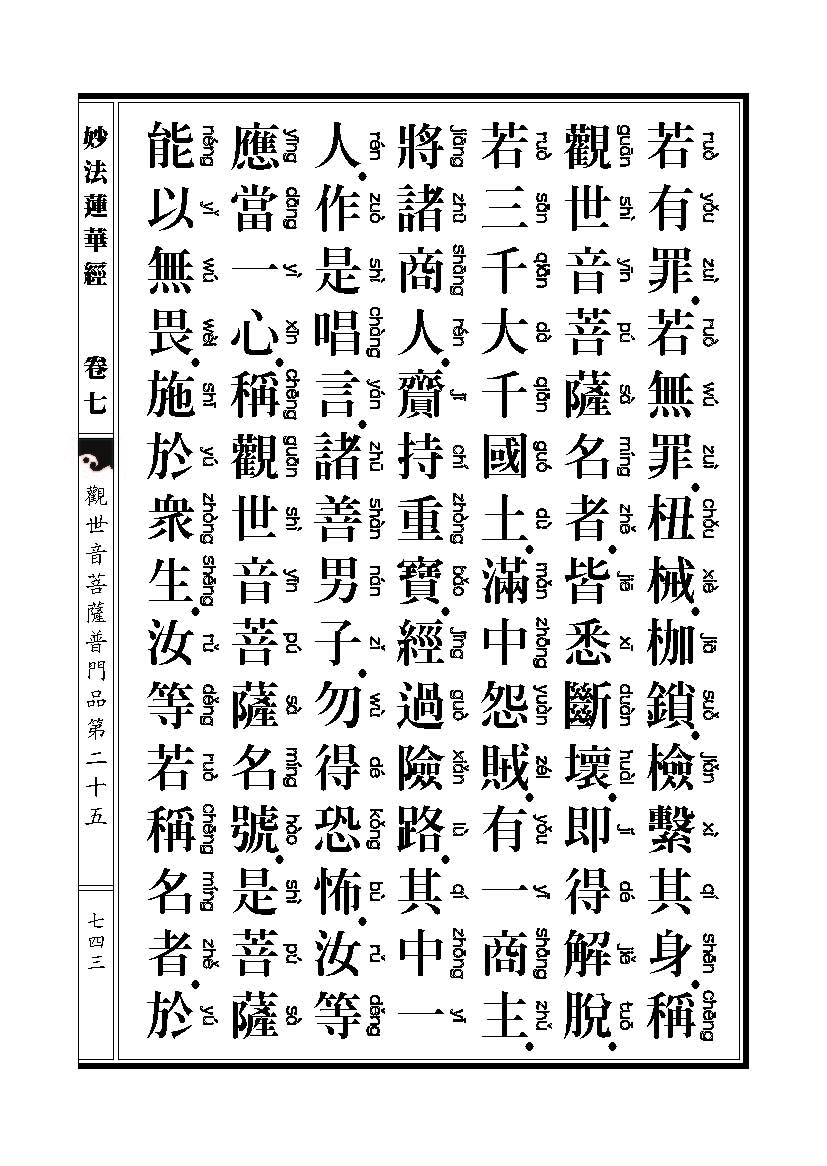 ruò yǒu zuì ruò wú zuì chǒu xiè jiā suǒ jiǎn xì qí shēn chēng
若有罪．若無罪．杻械．枷鎖．檢繫其身．稱
guān shì yīn pú sà míng zhě jiē xī duàn huài jí dé jiě tuō
觀世音菩薩名者．皆悉斷壞．即得解脫．
ruò sān qiān dà qiān guó dù mǎn zhōng yuàn zéi yǒu yī shāng zhǔ
若三千大千國土．滿中怨賊．有一商主．
jiāng zhū shāng rén jī chí zhòng bǎo jīng guò xiǎn lù qí zhōng yī
將諸商人．齎持重寶．經過險路．其中一
rén zuò shì chàng yán zhū shàn nán zǐ wù dé kǒng bù rǔ děng
人．作是唱言．諸善男子．勿得恐怖．汝等
yīng dāng yì xīn chēng guān shì yīn pú sà míng hào shì pú sà
應當一心．稱觀世音菩薩名號．是菩薩
néng yǐ wú wèi shī yú zhòng shēng rǔ děng ruò chēng míng zhě yú
能以無畏．施於衆生．汝等若稱名者．於
妙法蓮華經 卷七
觀世音菩薩普門品第二十五
七四三